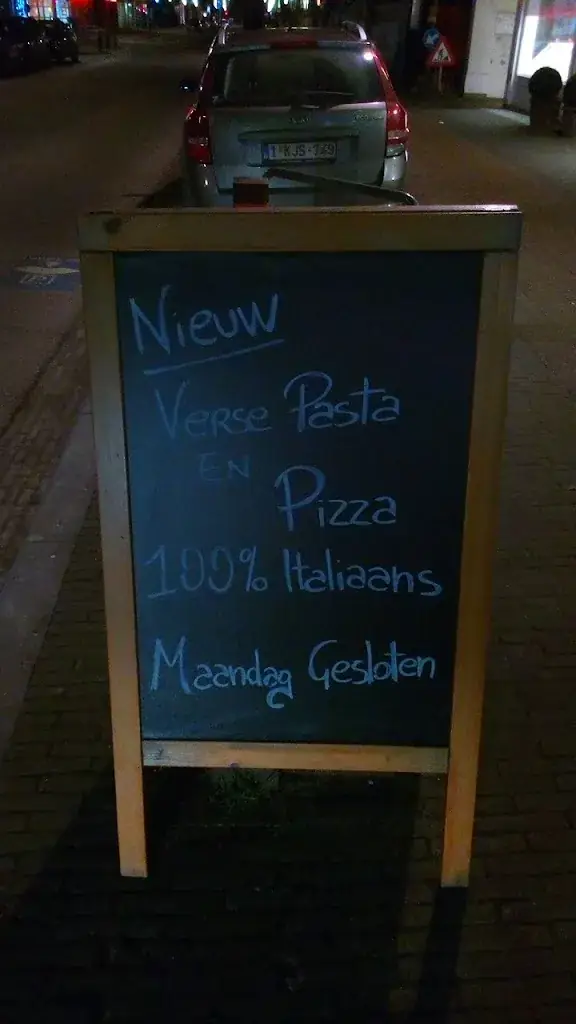 1-KJS-149
Nieuw
Verse Pasta
EN
Pizza
100% Italiaans
Maandag Gesloten